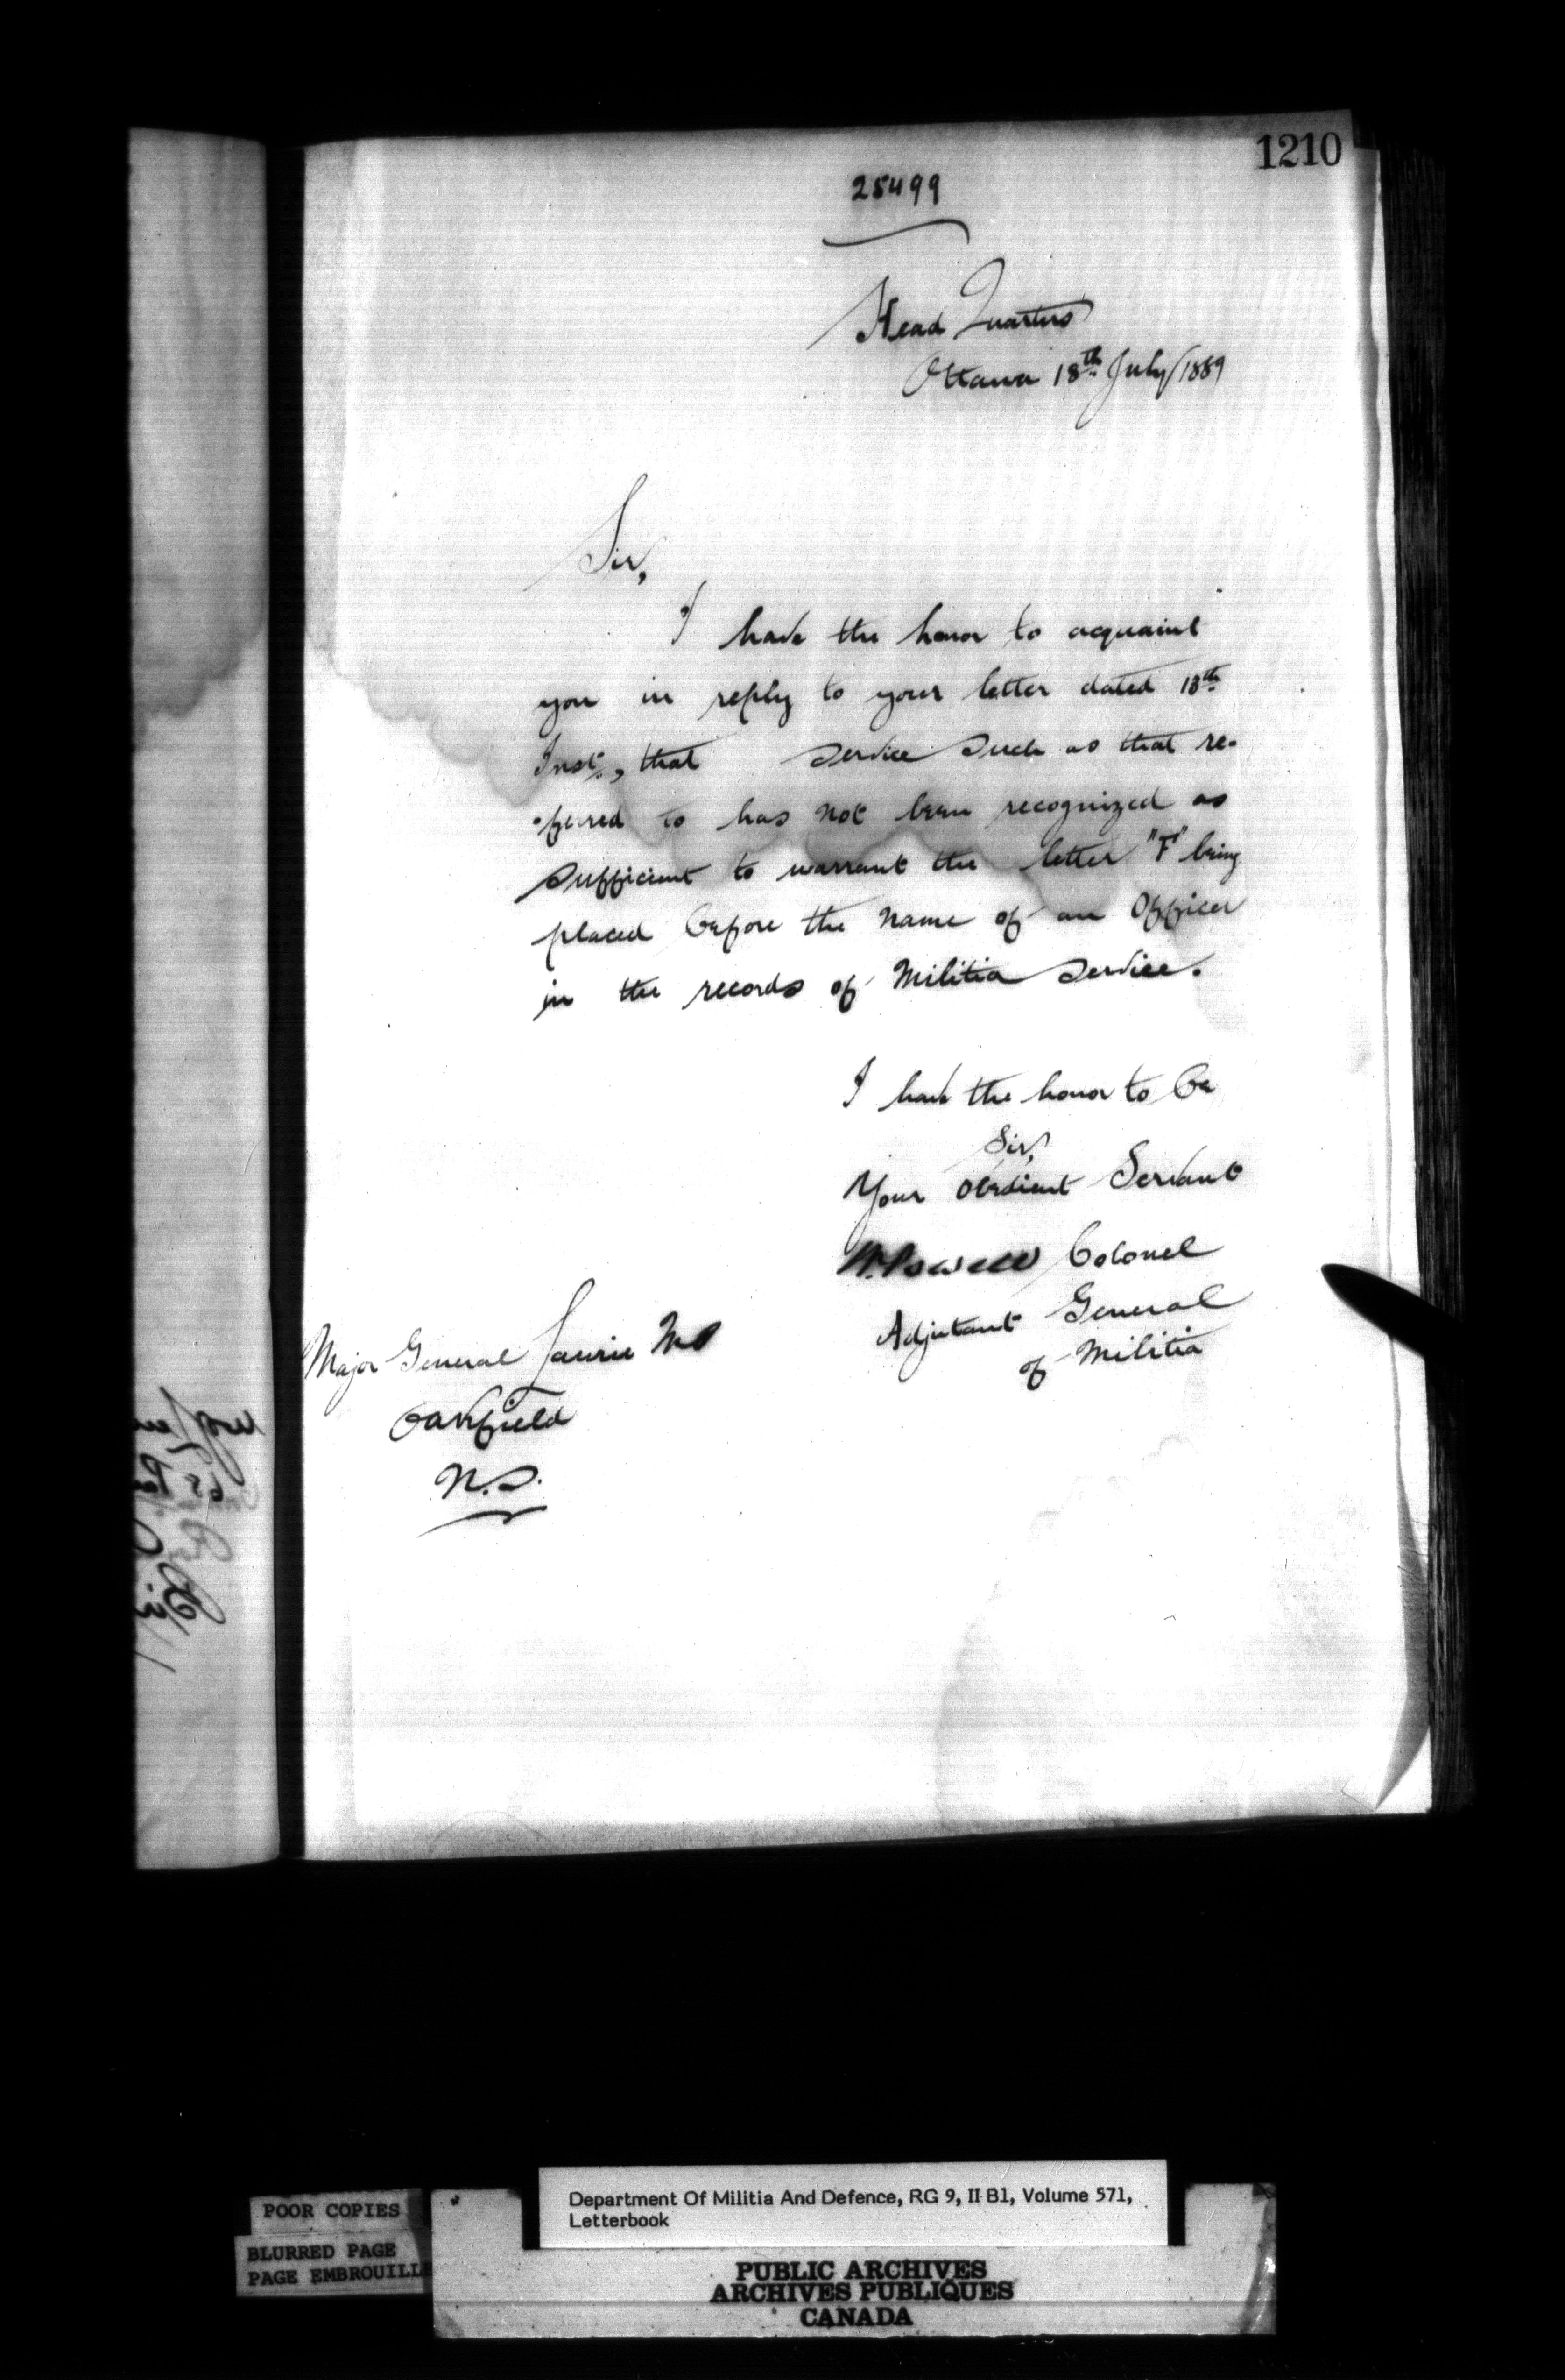 1210
25499
Head Quarters
Ottawa 18th July/1889
Sir,
I have the honor to acquaint
you in reply to your letter dated 13th
Inst., that service such as that re-
-ferred to has not been recognized as
sufficient to warrant the letter "F" being
placed before the name of an Officer
in the records of Militia Service.
I have the honor to be
Sir,
Your obedient Servant
W. Powell Colonel
Adjutant General
of Militia
Major General Laurie
Oakfield
N.S.
POOR COPIES
BLURRED PAGE
PAGE EMBROUILLE
Department Of Militia And Defence, RG 9, II B1, Volume 571,
Letterbook
PUBLIC ARCHIVES
ARCHIVES PUBLIQUES
CANADA